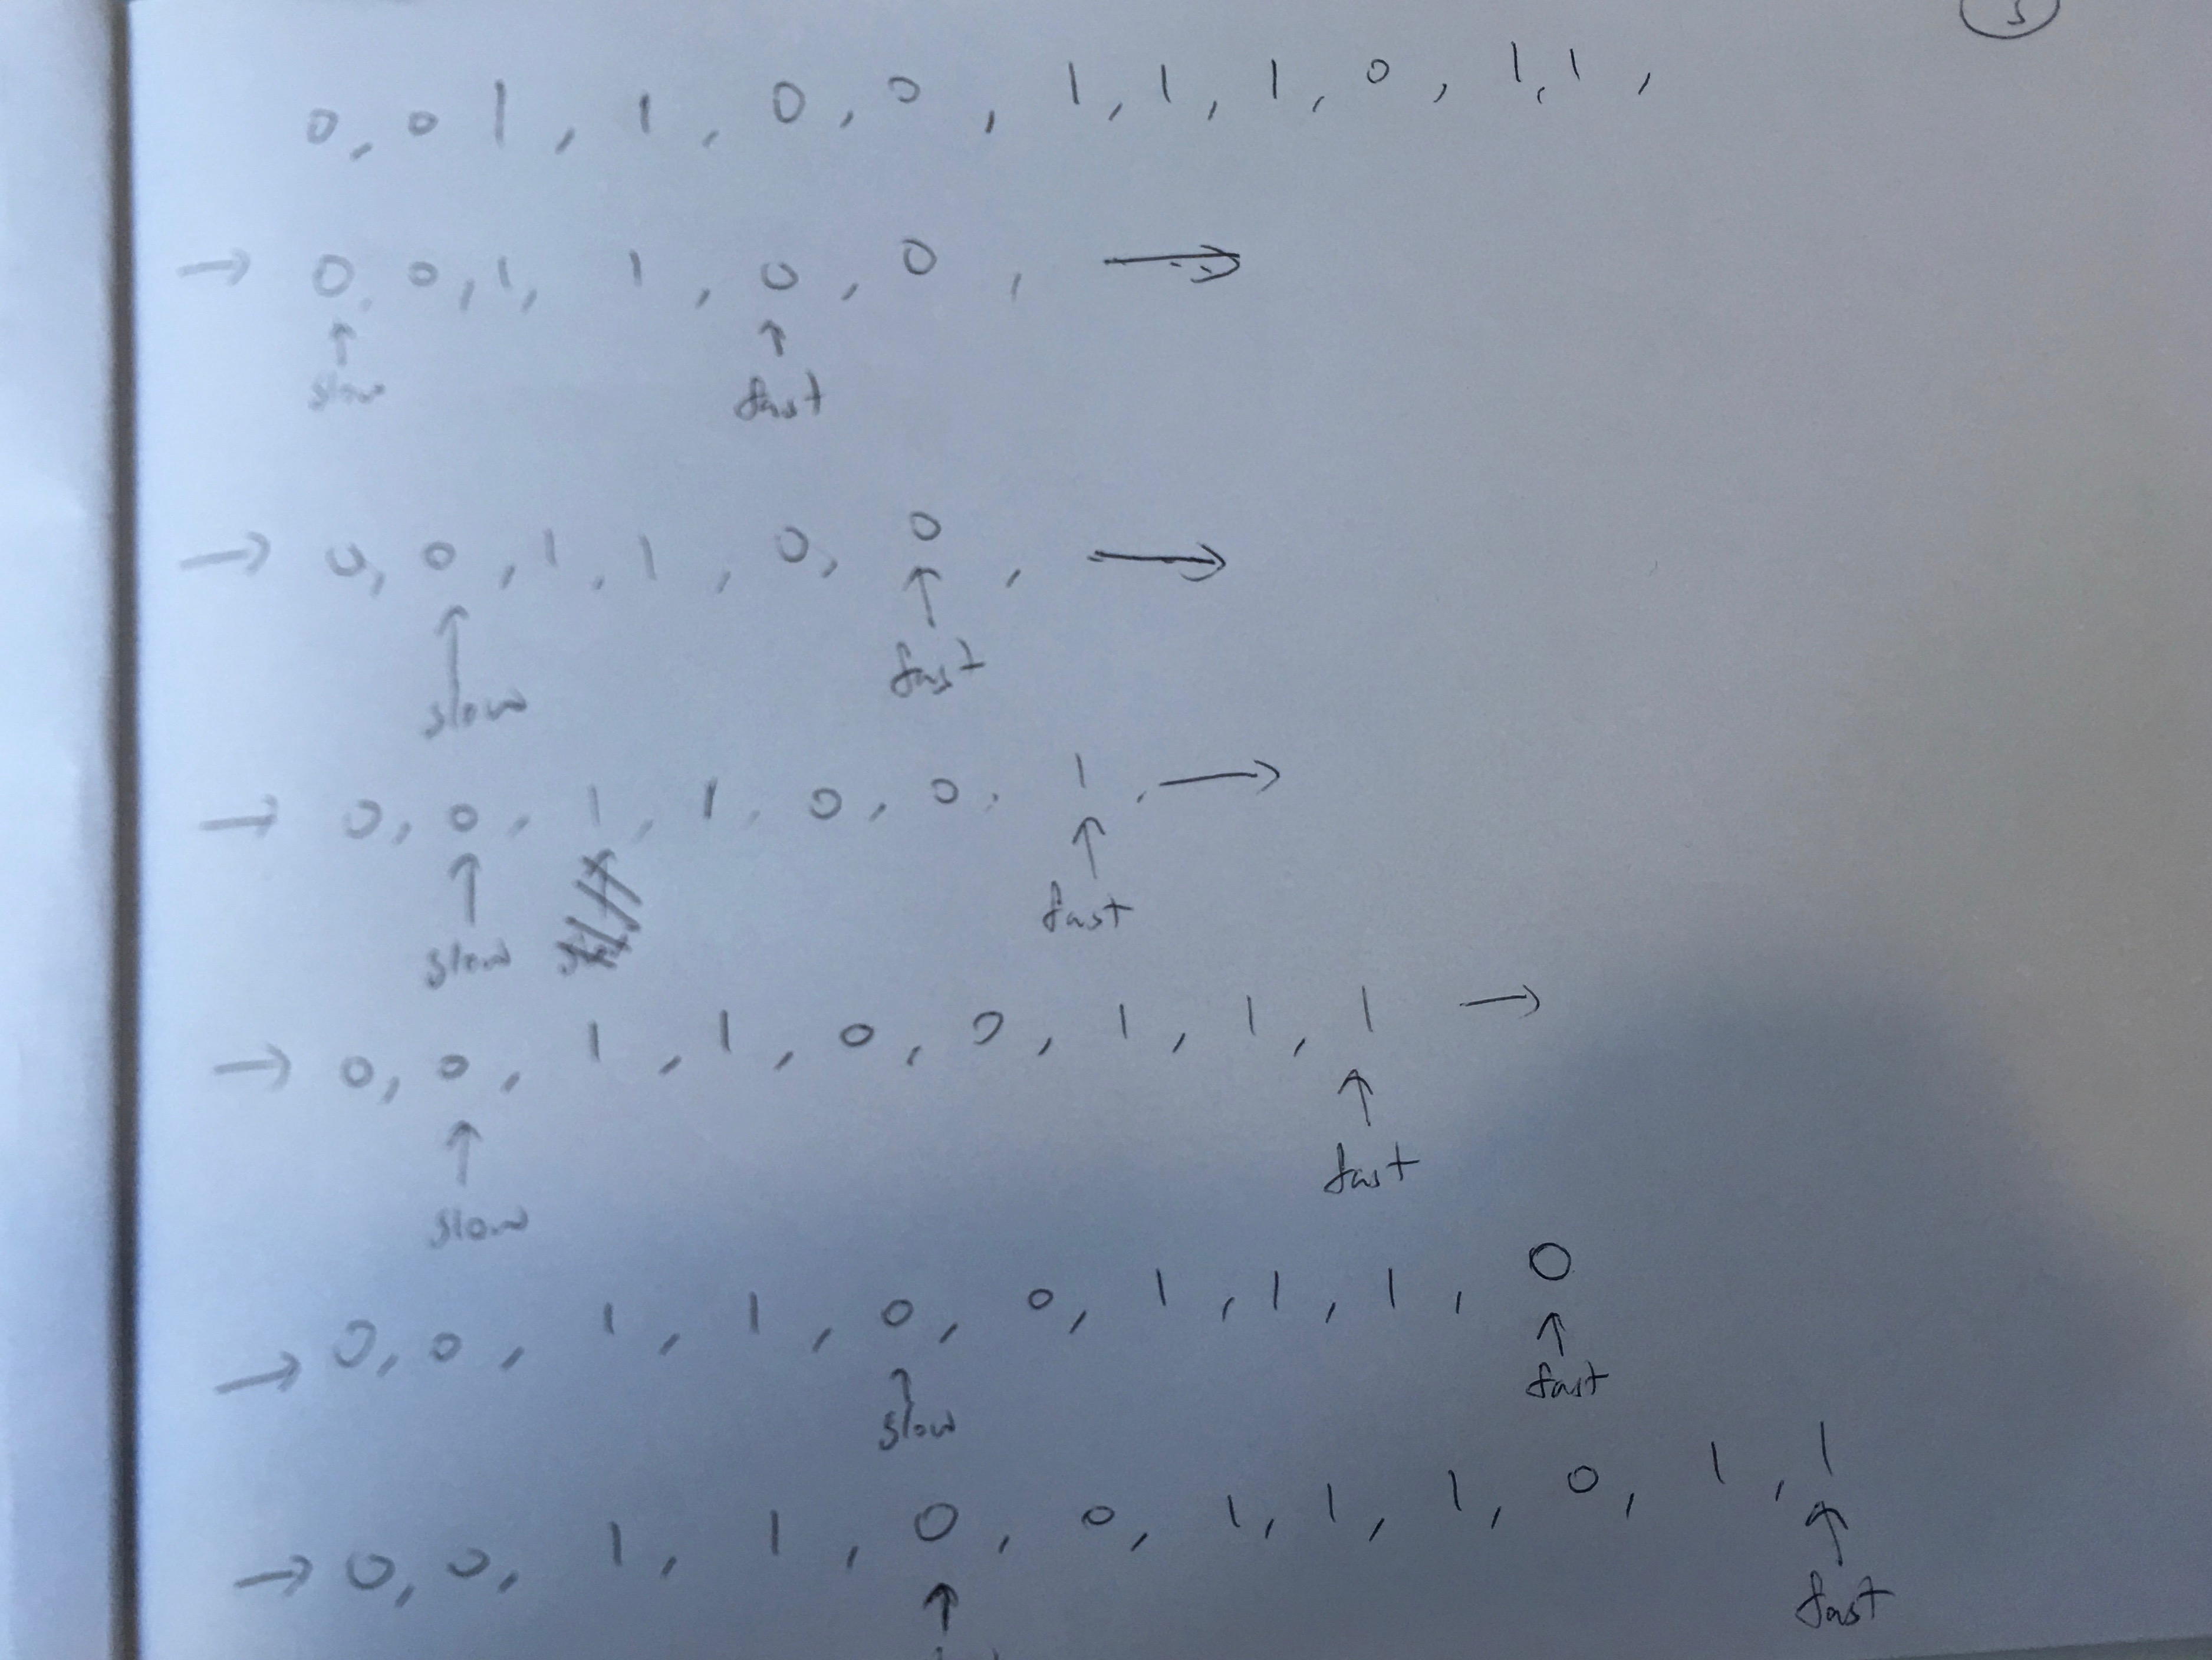 5
0, 0 1, 1, 0, 0, 1, 1, 1, 0, 1, 1,
→ 0, 0, 1, 1, 0, 0, →
↑ ↑
slow fast
→ 0, 0, 1, 1, 0, 0, →
↑ ↑
slow fast
→ 0, 0, 1, 1, 0, 0, 1, →
↑ ↑
slow fast
→ 0, 0, 1, 1, 0, 0, 1, 1, 1 →
↑ ↑
slow fast
→ 0, 0, 1, 1, 0, 0, 1, 1, 1, 0
↑ ↑
slow fast
→ 0, 0, 1, 1, 0, 0, 1, 1, 1, 0, 1, 1
↑ ↑
fast